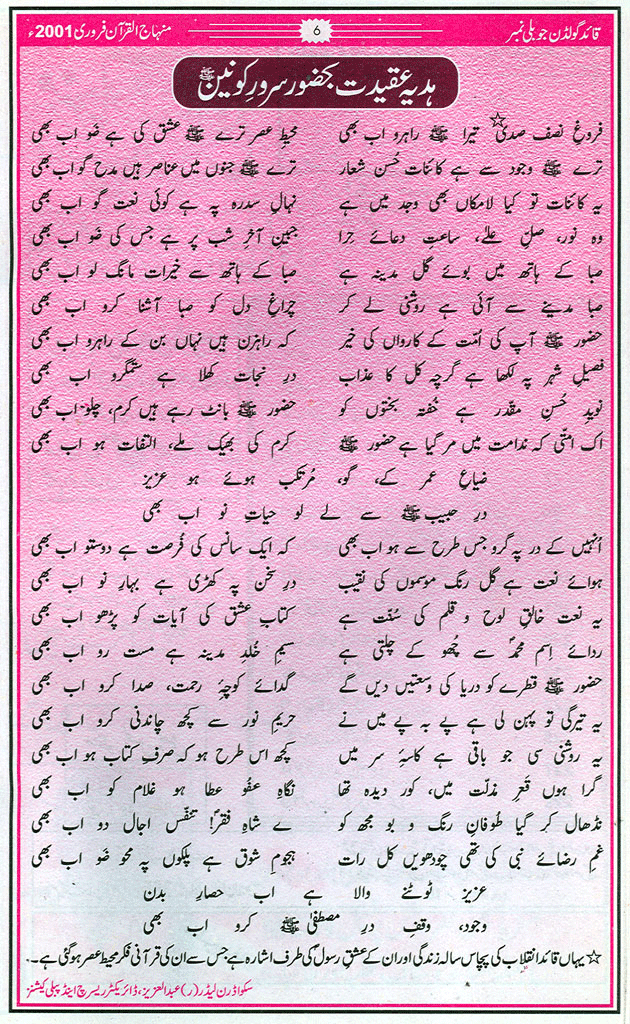 قائد گولڈن جوبلی نمبر 6 منہاج القرآن فروری 2001ء
ہدیۂ عقیدت بحضور سرورِ کونین ﷺ
فروغِ نصف صدی☆ تیرا ﷺ راہرو اب بھی محیطِ عصر ترے ﷺ عشق کی ہے ضَو اب بھی
ترے ﷺ وجود سے ہے کائنات حُسن شعار ترے ﷺ جنوں میں عناصر ہیں مدح گو اب بھی
یہ کائنات تو کیا لامکاں بھی وجد میں ہے نہالِ سدرہ پہ ہے کوئی نعت گو اب بھی
وہ نور، صلِ علیٰ، ساعتِ دعائے حِرا جبینِ آخرِ شب پر ہے جس کی ضَو اب بھی
صبا کے ہاتھ میں بوئے گلِ مدینہ ہے صبا کے ہاتھ سے خیرات مانگ لو اب بھی
صبا مدینے سے آئی ہے روشنی لے کر چراغِ دل کو صبا آشنا کرو اب بھی
حضور ﷺ آپ کی اُمّت کے کارواں کی خیر کہ راہزن ہیں نہاں بن کے راہرو اب بھی
فصیلِ شہر پہ لکھا ہے گرچہ کل کا عذاب درِ نجات کھلا ہے ستمگرو اب بھی
نویدِ حُسنِ مقدّر ہے خُفتہ بختوں کو حضور ﷺ بانٹ رہے ہیں کرم، چلو اب بھی
اک امّتی کہ ندامت میں مر گیا ہے حضور ﷺ کرم کی بھیک ملے، التفات ہو اب بھی
ضیاعِ عمر کے، گو، مُرتکب ہوئے ہو عزیز
درِ حبیب ﷺ سے لے لو حیاتِ نو اب بھی
اُنہیں کے در پہ گرو جس طرح سے ہو اب بھی کہ ایک سانس کی فُرصت ہے دوستو اب بھی
ہوائے نعت ہے گل رنگ موسموں کی نقیب درِ سخن پہ کھڑی ہے بہارِ نو اب بھی
یہ نعت خالقِ لوح و قلم کی سُنّت ہے کتابِ عشق کی آیات کو پڑھو اب بھی
ردائے اِسمِ محمدؐ سے چُھو کے چلتی ہے نسیمِ خُلدِ مدینہ ہے مست رو اب بھی
حضور ﷺ قطرے کو دریا کی وسعتیں دیں گے گدائے کوچۂ رحمت، صدا کرو اب بھی
یہ تیرگی تو پہن لی ہے پے بہ پے میں نے حریمِ نور سے کچھ چاندنی کرو اب بھی
یہ روشنی سی جو باقی ہے کاسۂ سر میں کچھ اس طرح ہو کہ صرفِ کتاب ہو اب بھی
گرا ہوں قعرِ مذلّت میں، کور دیدہ تھا نگاہِ عفُو عطا ہو غلام کو اب بھی
نڈھال کر گیا طُوفانِ رنگ و بو مجھ کو اے شاہِ فقرؐ! تنفّس اجال دو اب بھی
غمِ رضائے نبی کی تھی چودھویں کل رات ہجومِ شوق ہے پلکوں پہ محوِ ضَو اب بھی
عزیز ٹوٹنے والا ہے اب حصارِ بدن
وجود، وقفِ درِ مصطفیٰ ﷺ کرو اب بھی
☆ یہاں قائد انقلاب کی پچاس سالہ زندگی اور ان کے عشقِ رسولؐ کی طرف اشارہ ہے جس سے ان کی قرآنی فکر محیط عصر ہو گئی ہے۔
سکواڈرن لیڈر (ر) عبدالعزیز، ڈائریکٹر ریسرچ اینڈ پبلی کیشنز